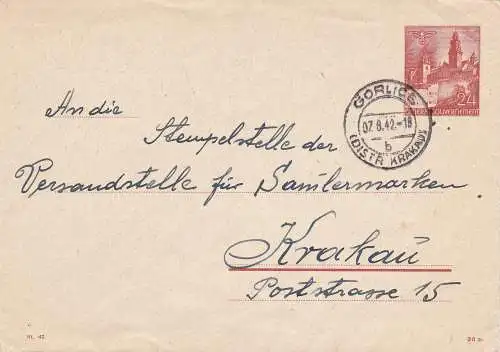 GORLICE
07.8.42.-18
b
(DISTR. KRAKAU)
24
Generalgouvernement
An die
Stempelstelle der
Versandstelle für Samlermarken
Krakau
Poststrasse 15